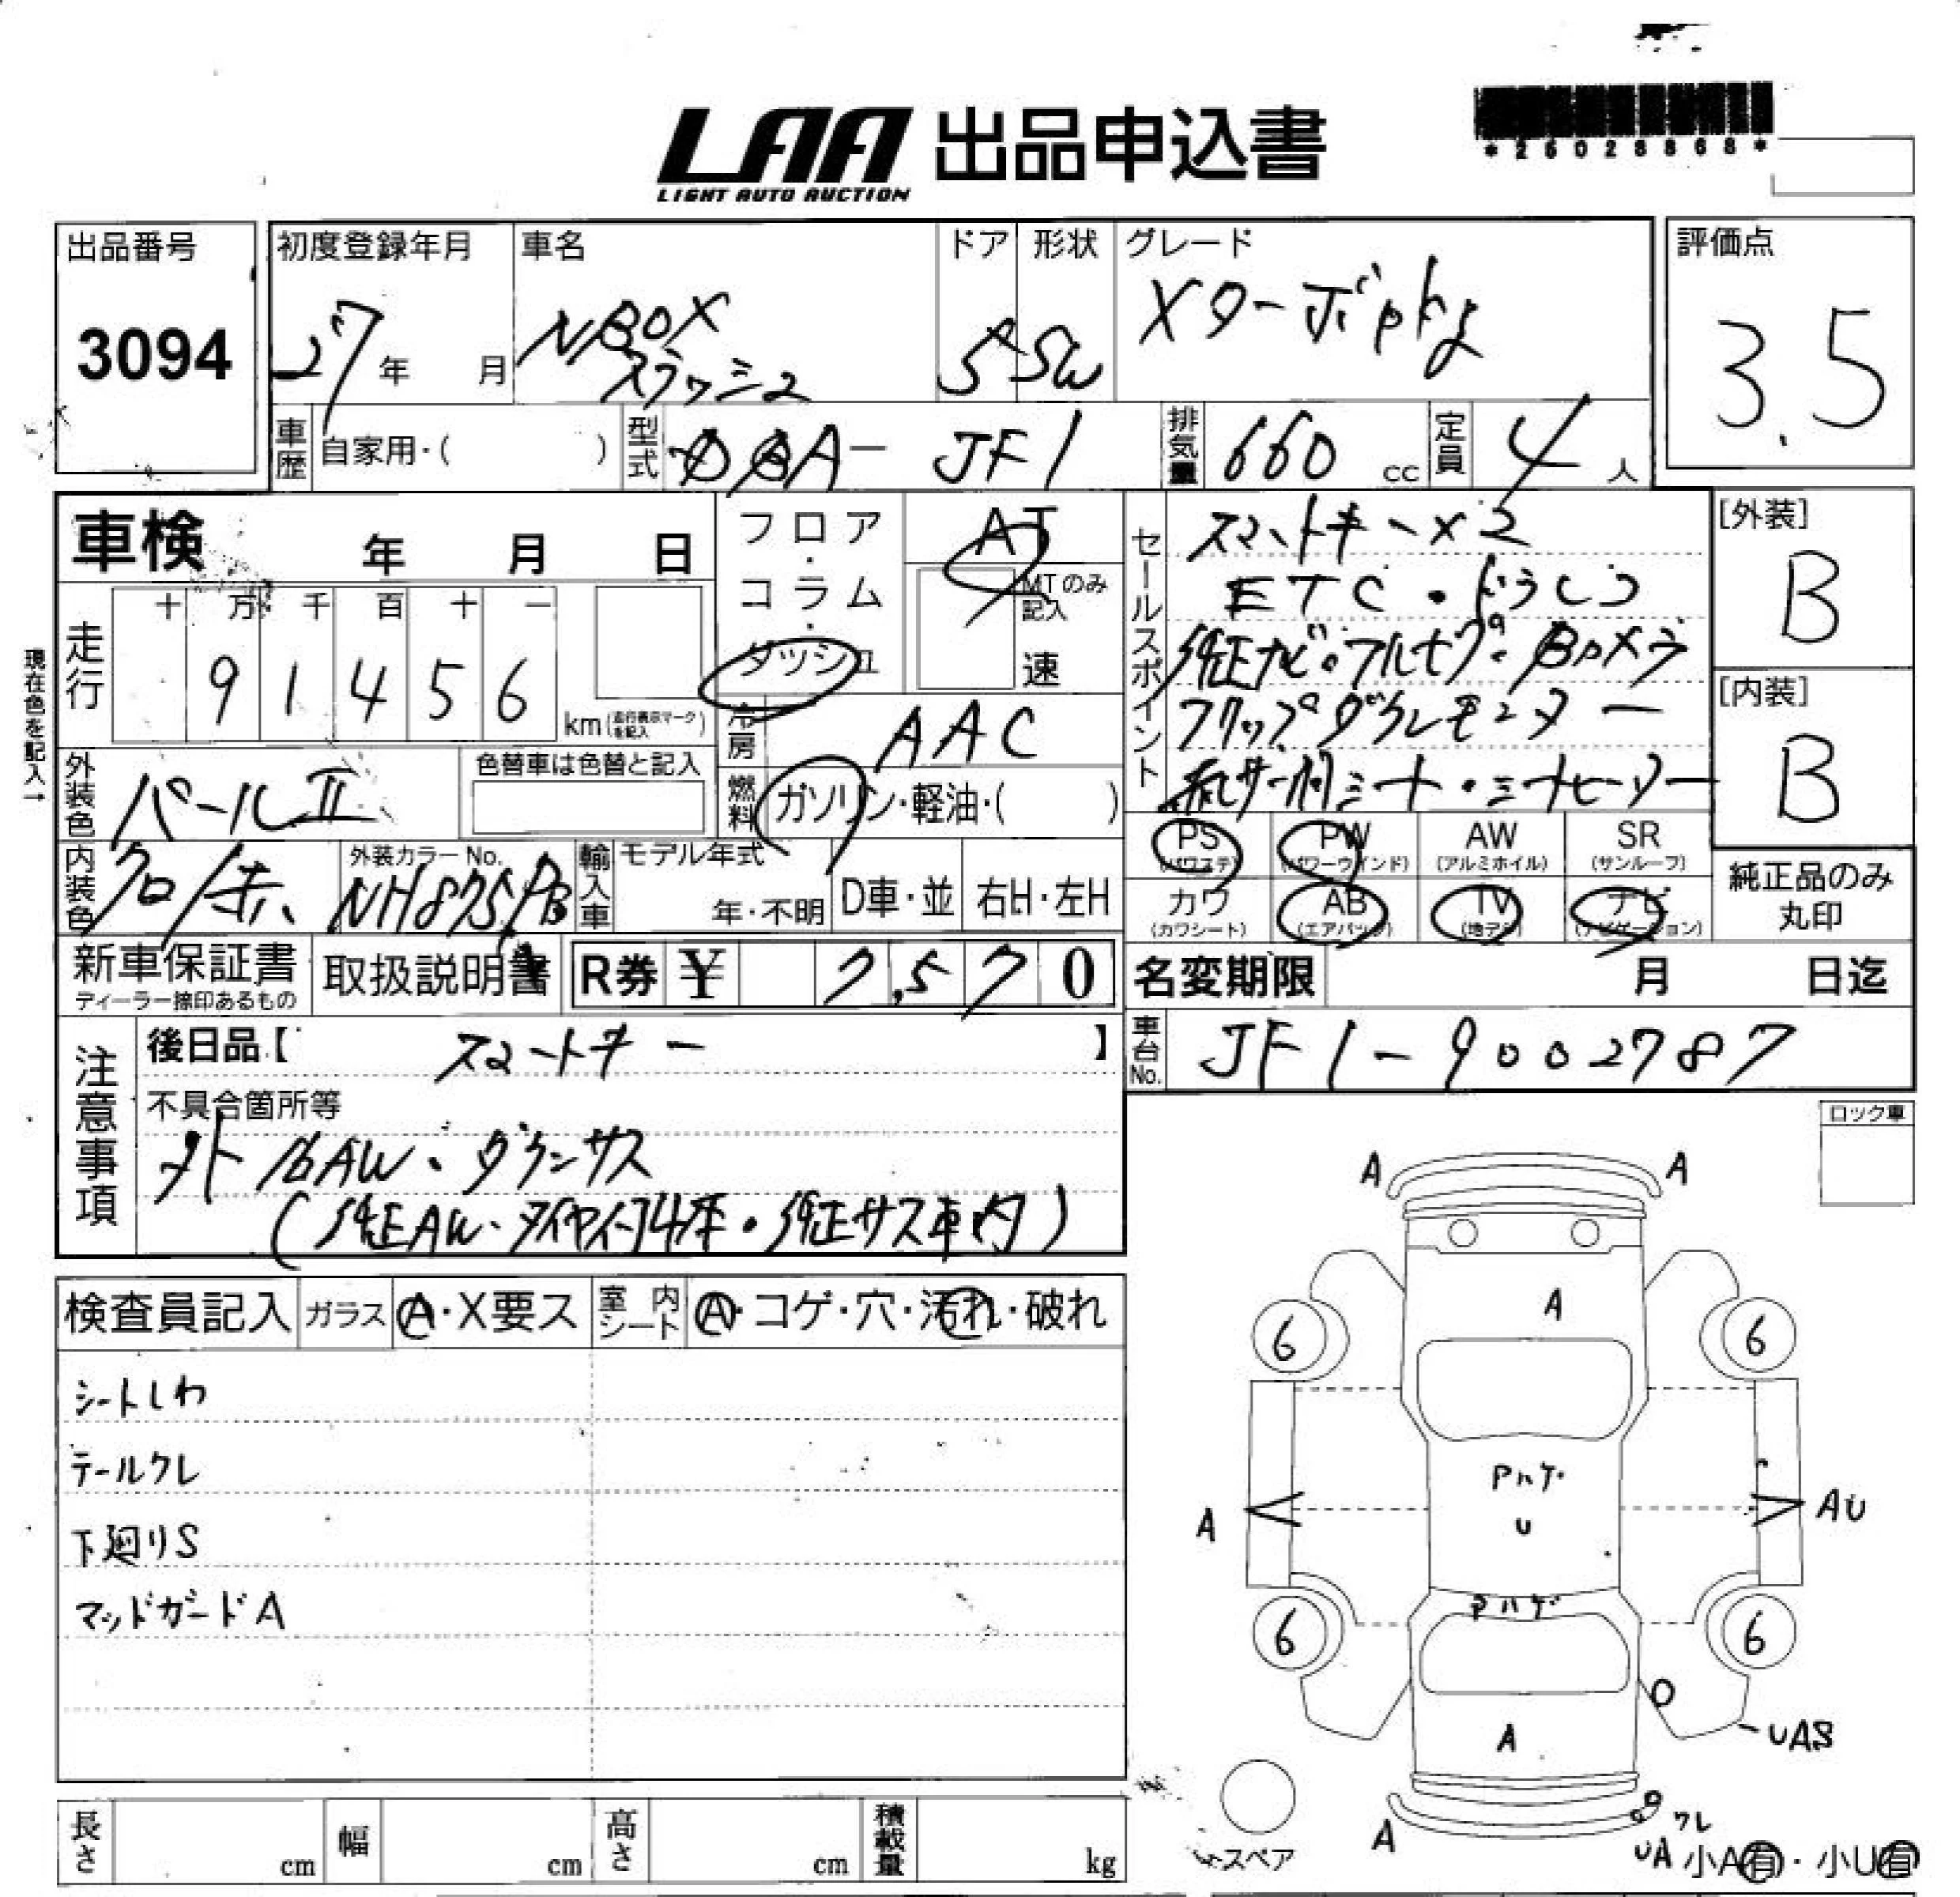 LAA 出品申込書
LIGHT AUTO AUCTION
*26028868*
出品番号
3094
初度登録年月
27年 月
車名
NBOX
スラッシュ
ドア
5
形状
SW
グレード
Xターボpkg
評価点
3.5
車歴
自家用・( )
型式
DBA-JF1
排気量
660 cc
定員
4 人
車検 年 月 日
フロア・コラム・ダッシュ
AT
MTのみ記入
速
セールスポイント
スマートキー×2
ETC・ドラレコ
純正ナビ・フルセグ・
フリップダウンモニター
シート・シートヒーター
[外装]
B
[内装]
B
現在色を記入→
走行
十 万 千 百 十 一
9 1 4 5 6
km(走行表示マークを記入)
冷房
AAC
外装色
パールII
色替車は色替と記入
燃料
ガソリン・軽油・( )
PS
(パワステ)
PW
(パワーウインド)
AW
(アルミホイル)
SR
(サンルーフ)
カワ
(カワシート)
AB
(エアバック)
TV
(地デジ)
ナビ
(ナビゲーション)
純正品のみ
丸印
内装色
クロ/赤
外装カラーNo.
NH875P
輸入車
モデル年式
年・不明
D車・並
右H・左H
新車保証書
ディーラー捺印あるもの
取扱説明書
R券 ¥ 7,570
名変期限 月 日迄
車台No.
JF1-9002787
注意事項
後日品【 スマートキー 】
不具合箇所等
外 16AW・ダウンサス
(純正AW・タイヤ付4本・純正サス車内)
ロック車
検査員記入
ガラス
A・X要ス
室内シート
A・コゲ・穴・汚れ・破れ
シートしわ
テールクレ
下廻りS
マッドガードA
A A
A
6 6
Pハゲ
U
A AU
Pハゲ
6 6
A
UAS
A
クレ
UA
小A有・小U有
スペア
長さ cm
幅 cm
高さ cm
積載量 kg